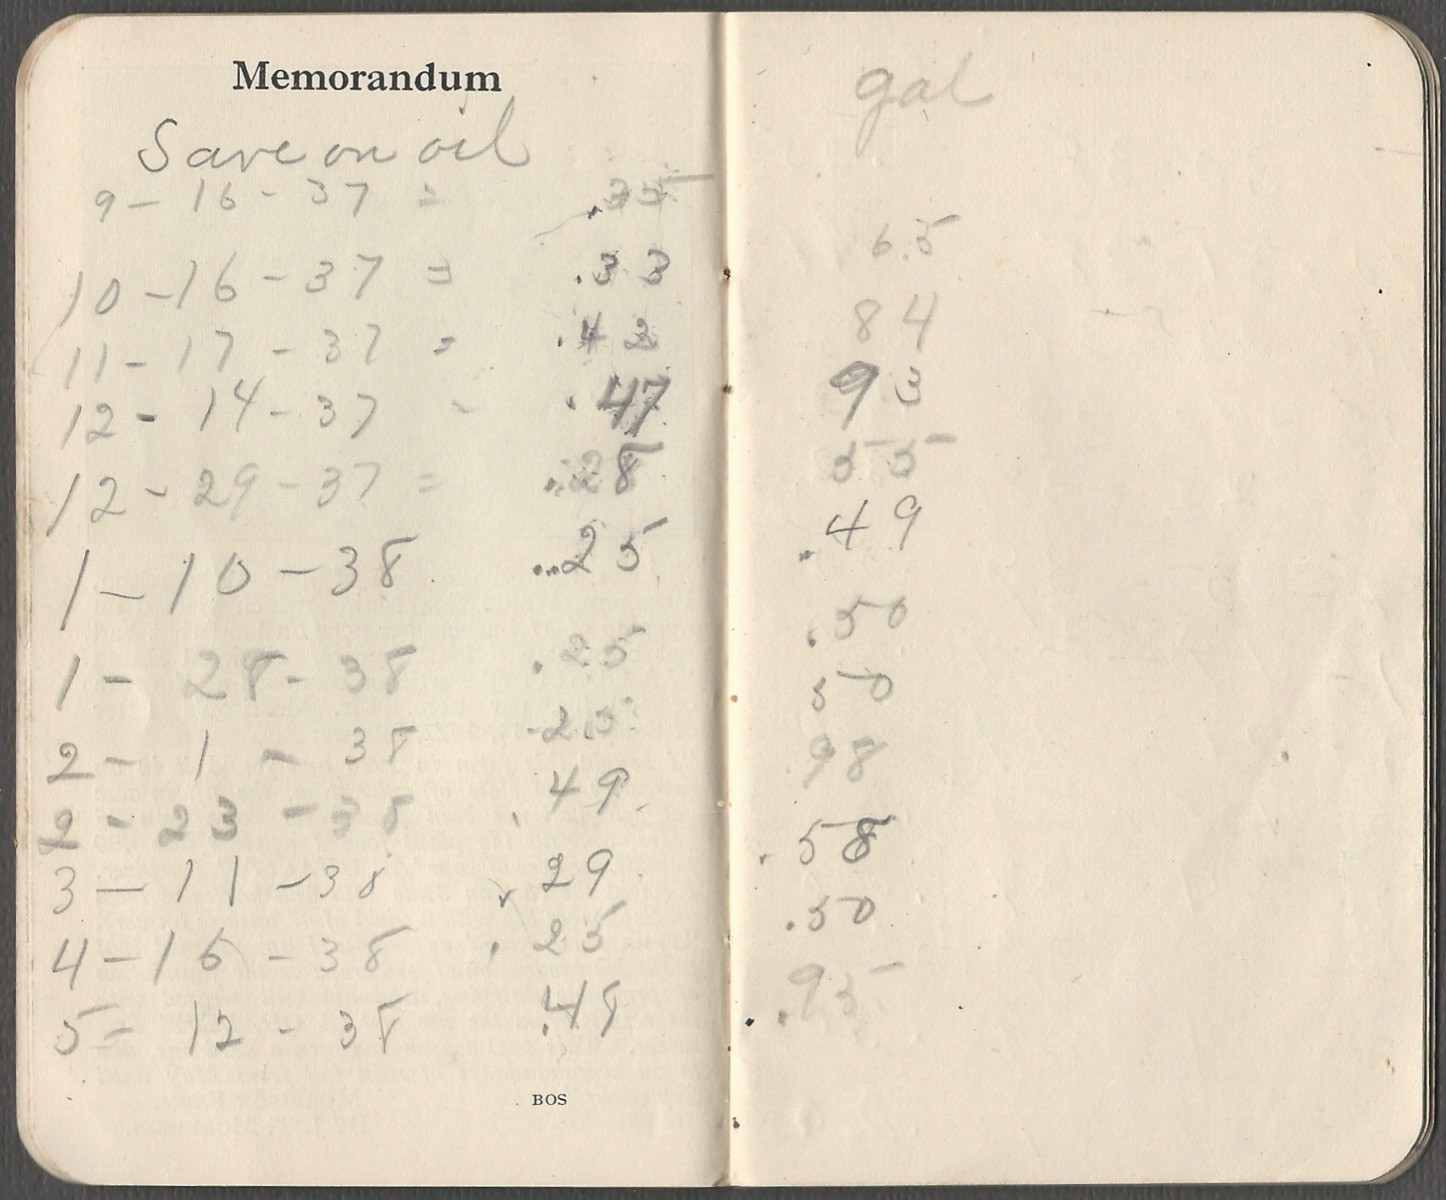 Memorandum
Save on oil
9 - 16 - 37 = .35
10 - 16 - 37 = .33
11 - 17 - 37 = .42
12 - 14 - 37 - .47
12 - 29 - 37 = .28
1 - 10 - 38 .25
1 - 28 - 38 .25
2 - 1 - 38 .25
2 - 23 - 38 .49
3 - 11 - 38 .29
4 - 16 - 38 .25
5 - 12 - 38 .48
BOS
gal
65
84
93
55
.49
.50
50
98
.58
.50
.95